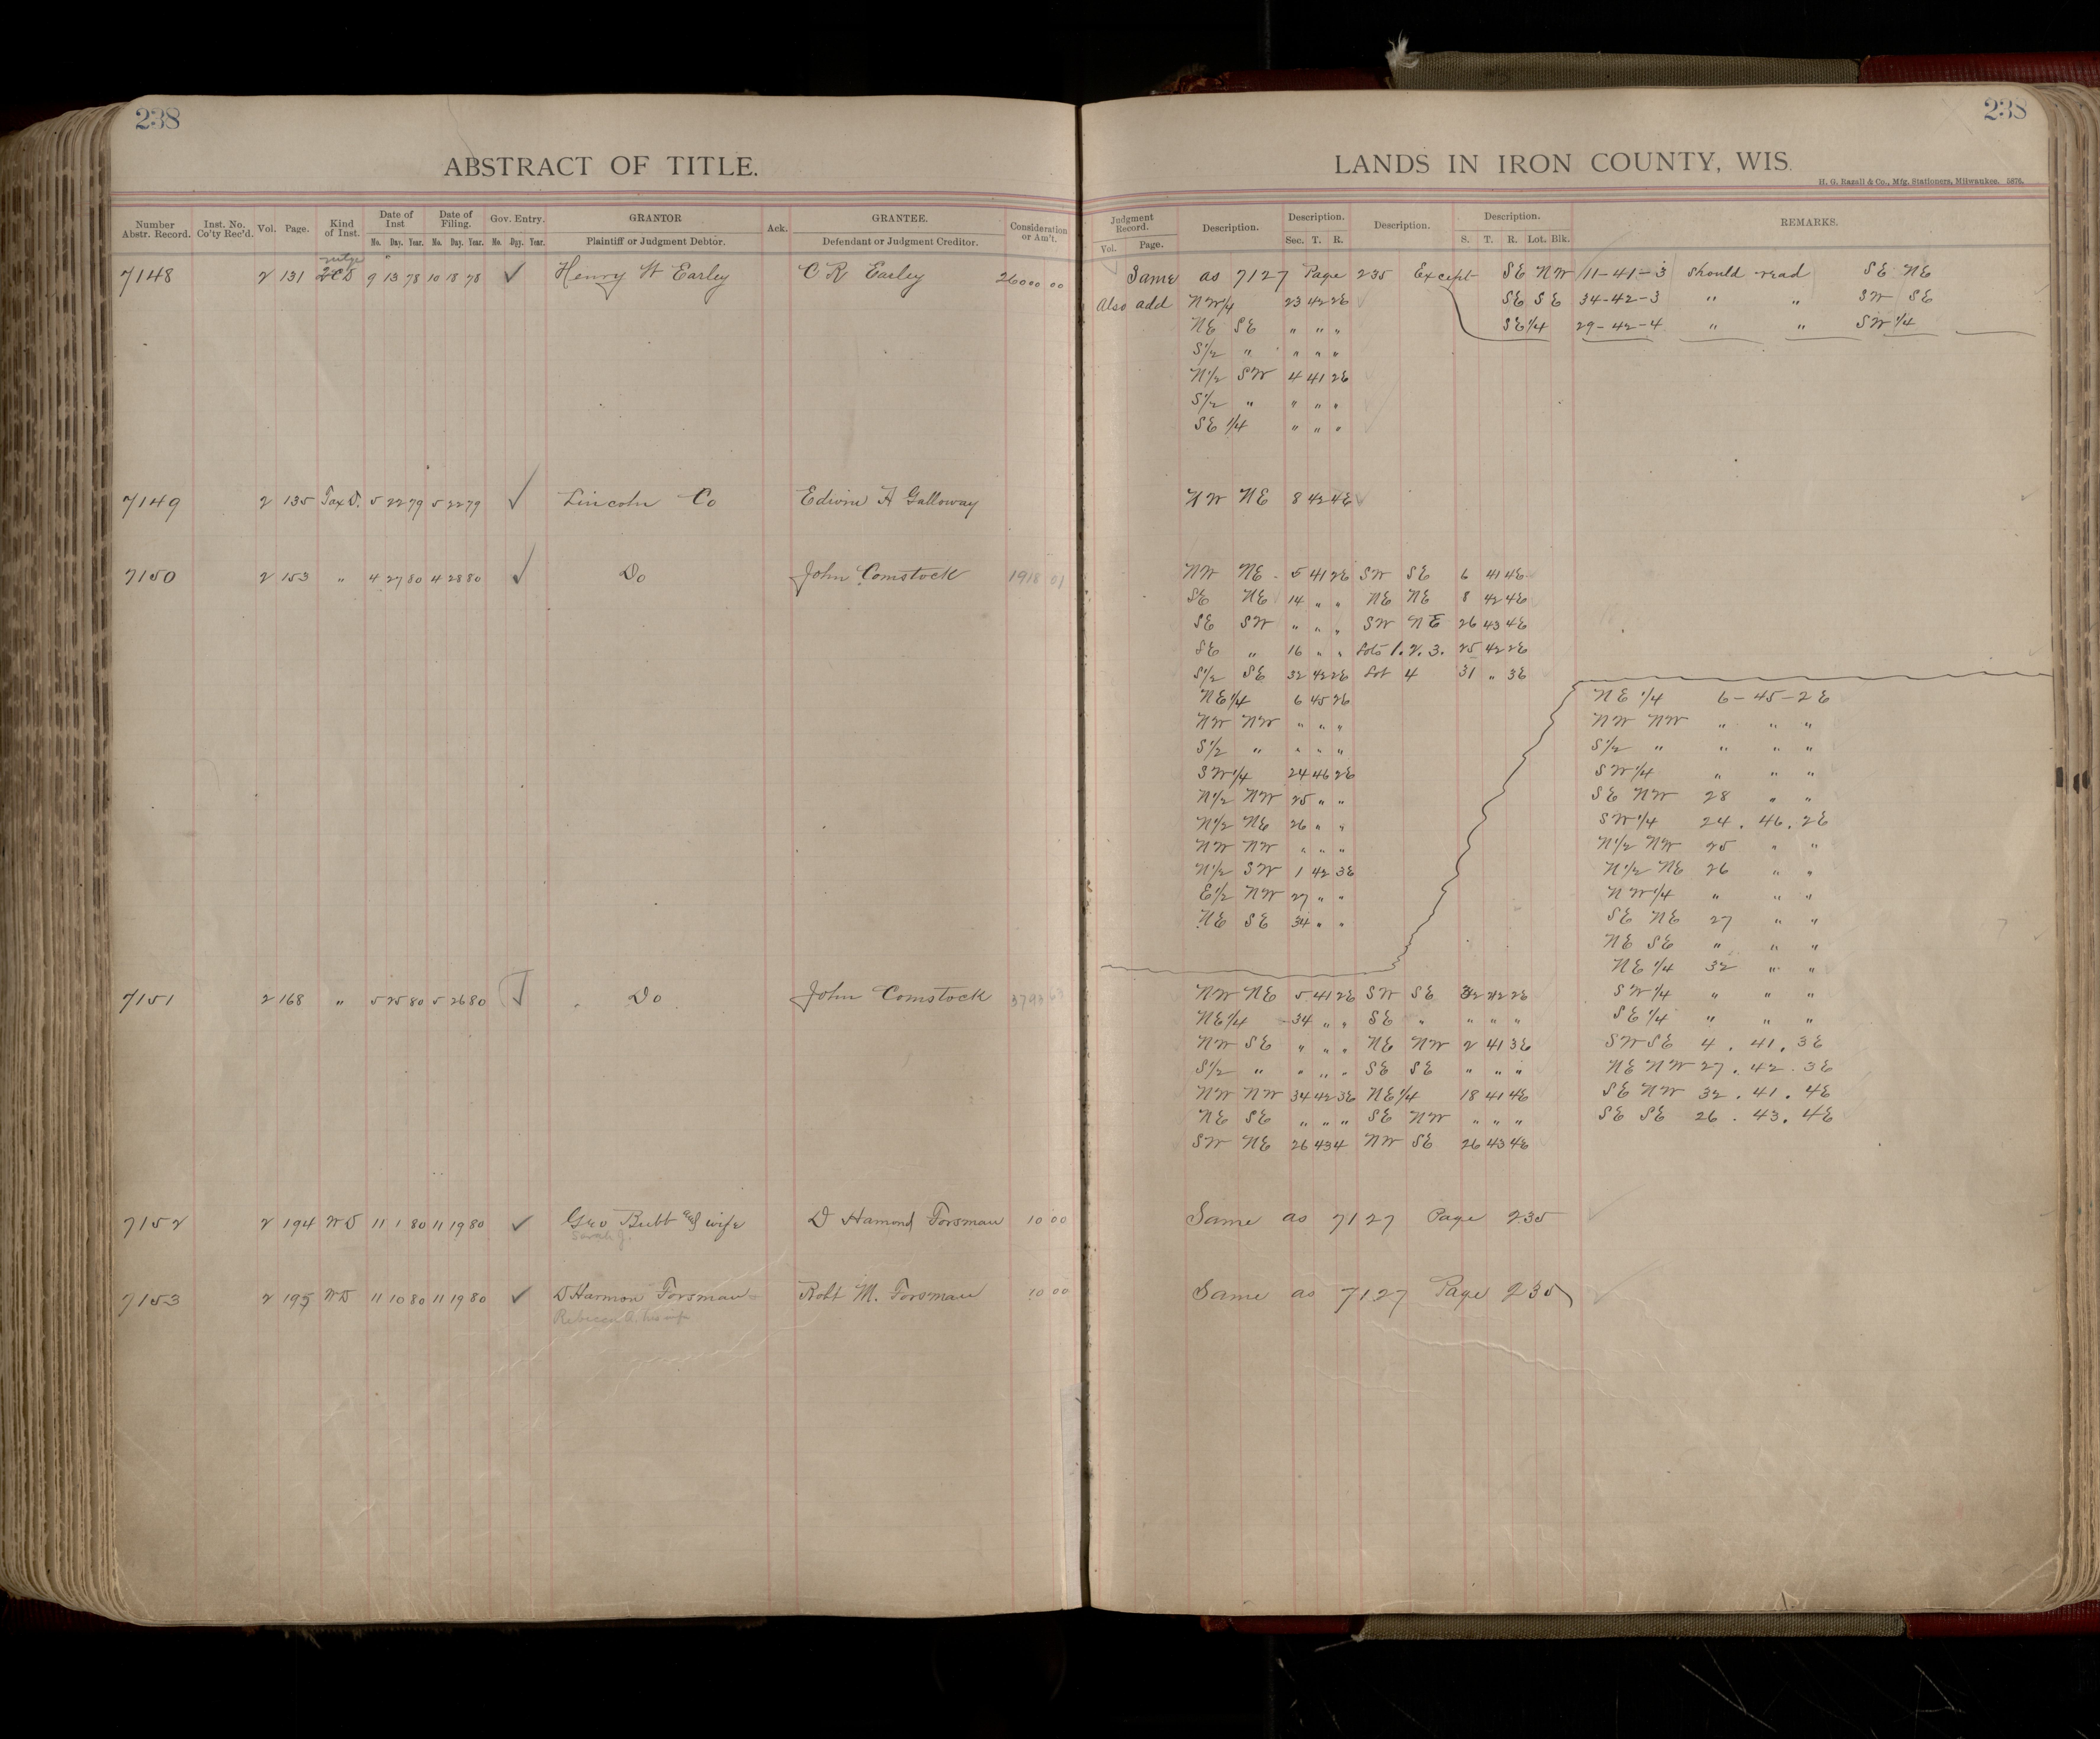 238
ABSTRACT OF TITLE.
Number Abstr. Record. Inst. No. Co'ty Rec'd. Vol. Page. Kind of Inst. Date of Inst Date of Filing. Gov. Entry. GRANTOR Ack. GRANTEE. Consideration or Am't.
No. Day. Year. No. Day. Year. No. Day. Year. Plaintiff or Judgment Debtor. Defendant or Judgment Creditor.
7148 2 131 2CD 9 13 78 10 18 78 ✓ Henry W Earley C R Earley 26000 00
7149 2 135 Tax D. 5 22 79 5 22 79 ✓ Lincoln Co Edwin H Galloway
7150 2 153 " 4 27 80 4 28 80 ✓ Do John Comstock 1918 01
7151 2 168 " 5 25 80 5 26 80 ✓ Do John Comstock
7152 2 194 WD 11 1 80 11 19 80 ✓ Geo Bubb and wife D Hamond Forsman 10 00
Sarah J.
7153 2 195 WD 11 10 80 11 19 80 ✓ D Harmon Forsman Robt M. Forsman 10 00
Rebecca A. his
238
LANDS IN IRON COUNTY, WIS.
H. G. Razall & Co., Mfg. Stationers, Milwaukee. 5876.
Judgment Record. Description. Description. Description. Description. REMARKS.
Vol. Page. Sec. T. R. S. T. R. Lot. Blk.
Same as 7127 Page 235 Except SE NW 11-41-3 should read SE NE
Also add NW1/4 23 42 2E SE SE 34-42-3 " " SW SE
NE SE " " " SE1/4 29-42-4 " " SW1/4
S1/2 " " " "
N1/2 SW 4 41 2E
S1/2 " " " "
SE 1/4 " " "
NW NE 8 42 4E
NW NE 5 41 2E SW SE 6 41 4E
SE NE 14 " " NE NE 8 42 4E
SE SW " " " SW NE 26 43 4E
SE " 16 " " Lots 1. 2. 3. 25 42 2E
S1/2 SE 32 42 2E Lot 4 31 " 3E
NE1/4 6 45 2E
NW NW " " "
S1/2 " " " "
SW1/4 24 46 2E
N1/2 NW 25 " "
N1/2 NE 26 " "
NW NW " " "
N1/2 SW 1 42 3E
E1/2 NW 27 " "
NE SE 34 " "
NW NE 5 41 2E SW SE 32 42 2E
NE1/4 34 " " SE " " " "
NW SE " " " NE NW 2 41 3E
S1/2 " " " " SE SE " " "
NW NW 34 42 3E NE1/4 18 41 4E
NE SE " " " SE NW " " "
SW NE 26 43 4 NW SE 26 43 4E
NE 1/4 6-45-2E
NW NW " " "
S1/2 " " " "
SW1/4 " " "
SE NW 28 " "
SW1/4 24. 46. 2E
N1/2 NW 25 " "
N1/2 NE 26 " "
NW1/4 " " "
SE NE 27 " "
NE SE " " "
NE 1/4 32 " "
SW1/4 " " "
SE 1/4 " " "
SW SE 4. 41. 3E
NE NW 27. 42. 3E
SE NW 32. 41. 4E
SE SE 26. 43. 4E
Same as 7127 Page 235
Same as 7127 Page 235